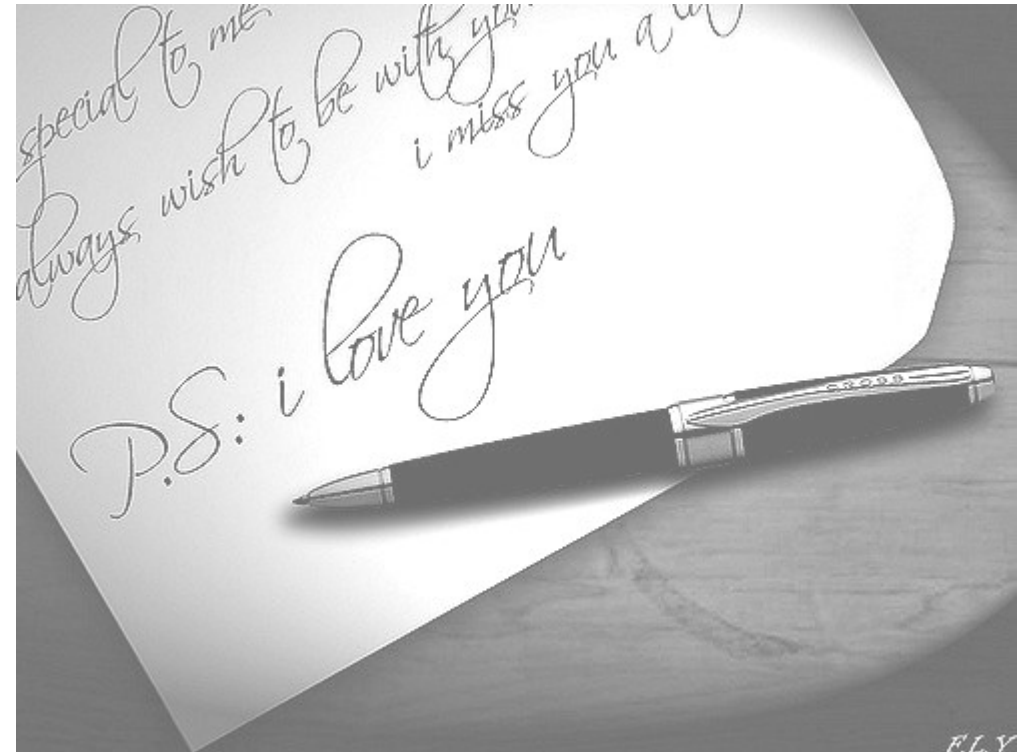 special to me
always wish to be with you
i miss you a
P.S: i love you
ELY